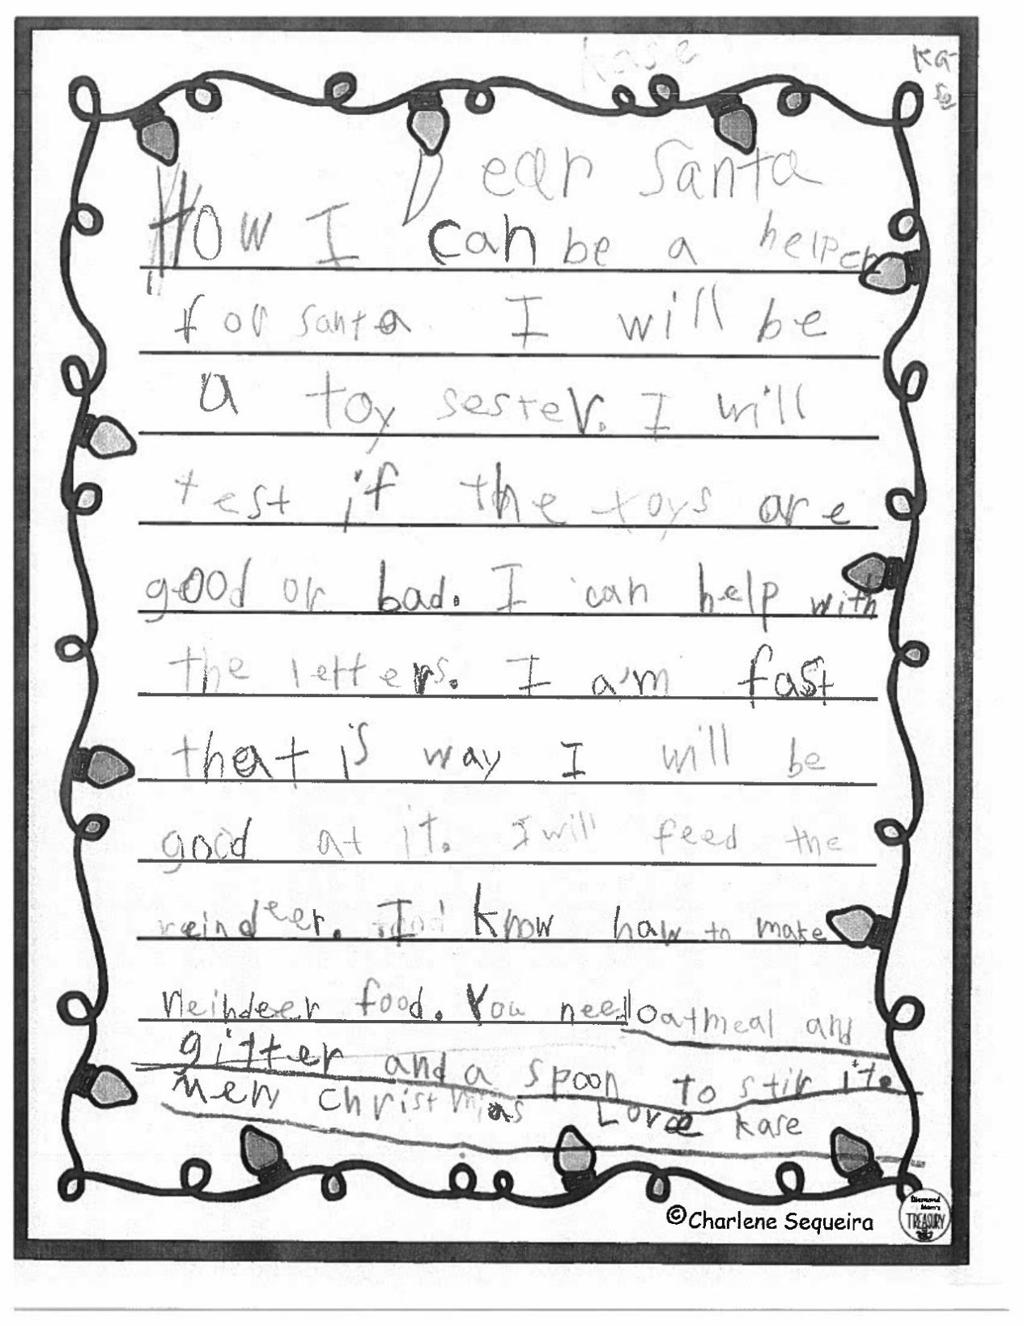 kase
ka-
se
Dear Santa
How I can be a helper
for santa I will be
a toy sester. I will
test if the toys are
good or bad. I can help with
the letters. I a'm fast
that is way I will be
good at it. I will feed the
reindeer. I know haw to make
reindeer food. You need oatmeal and
gitter and a spoon to stir it.
mery christmas Love kase
©Charlene Sequeira
Diamond
Mom's
TREASURY